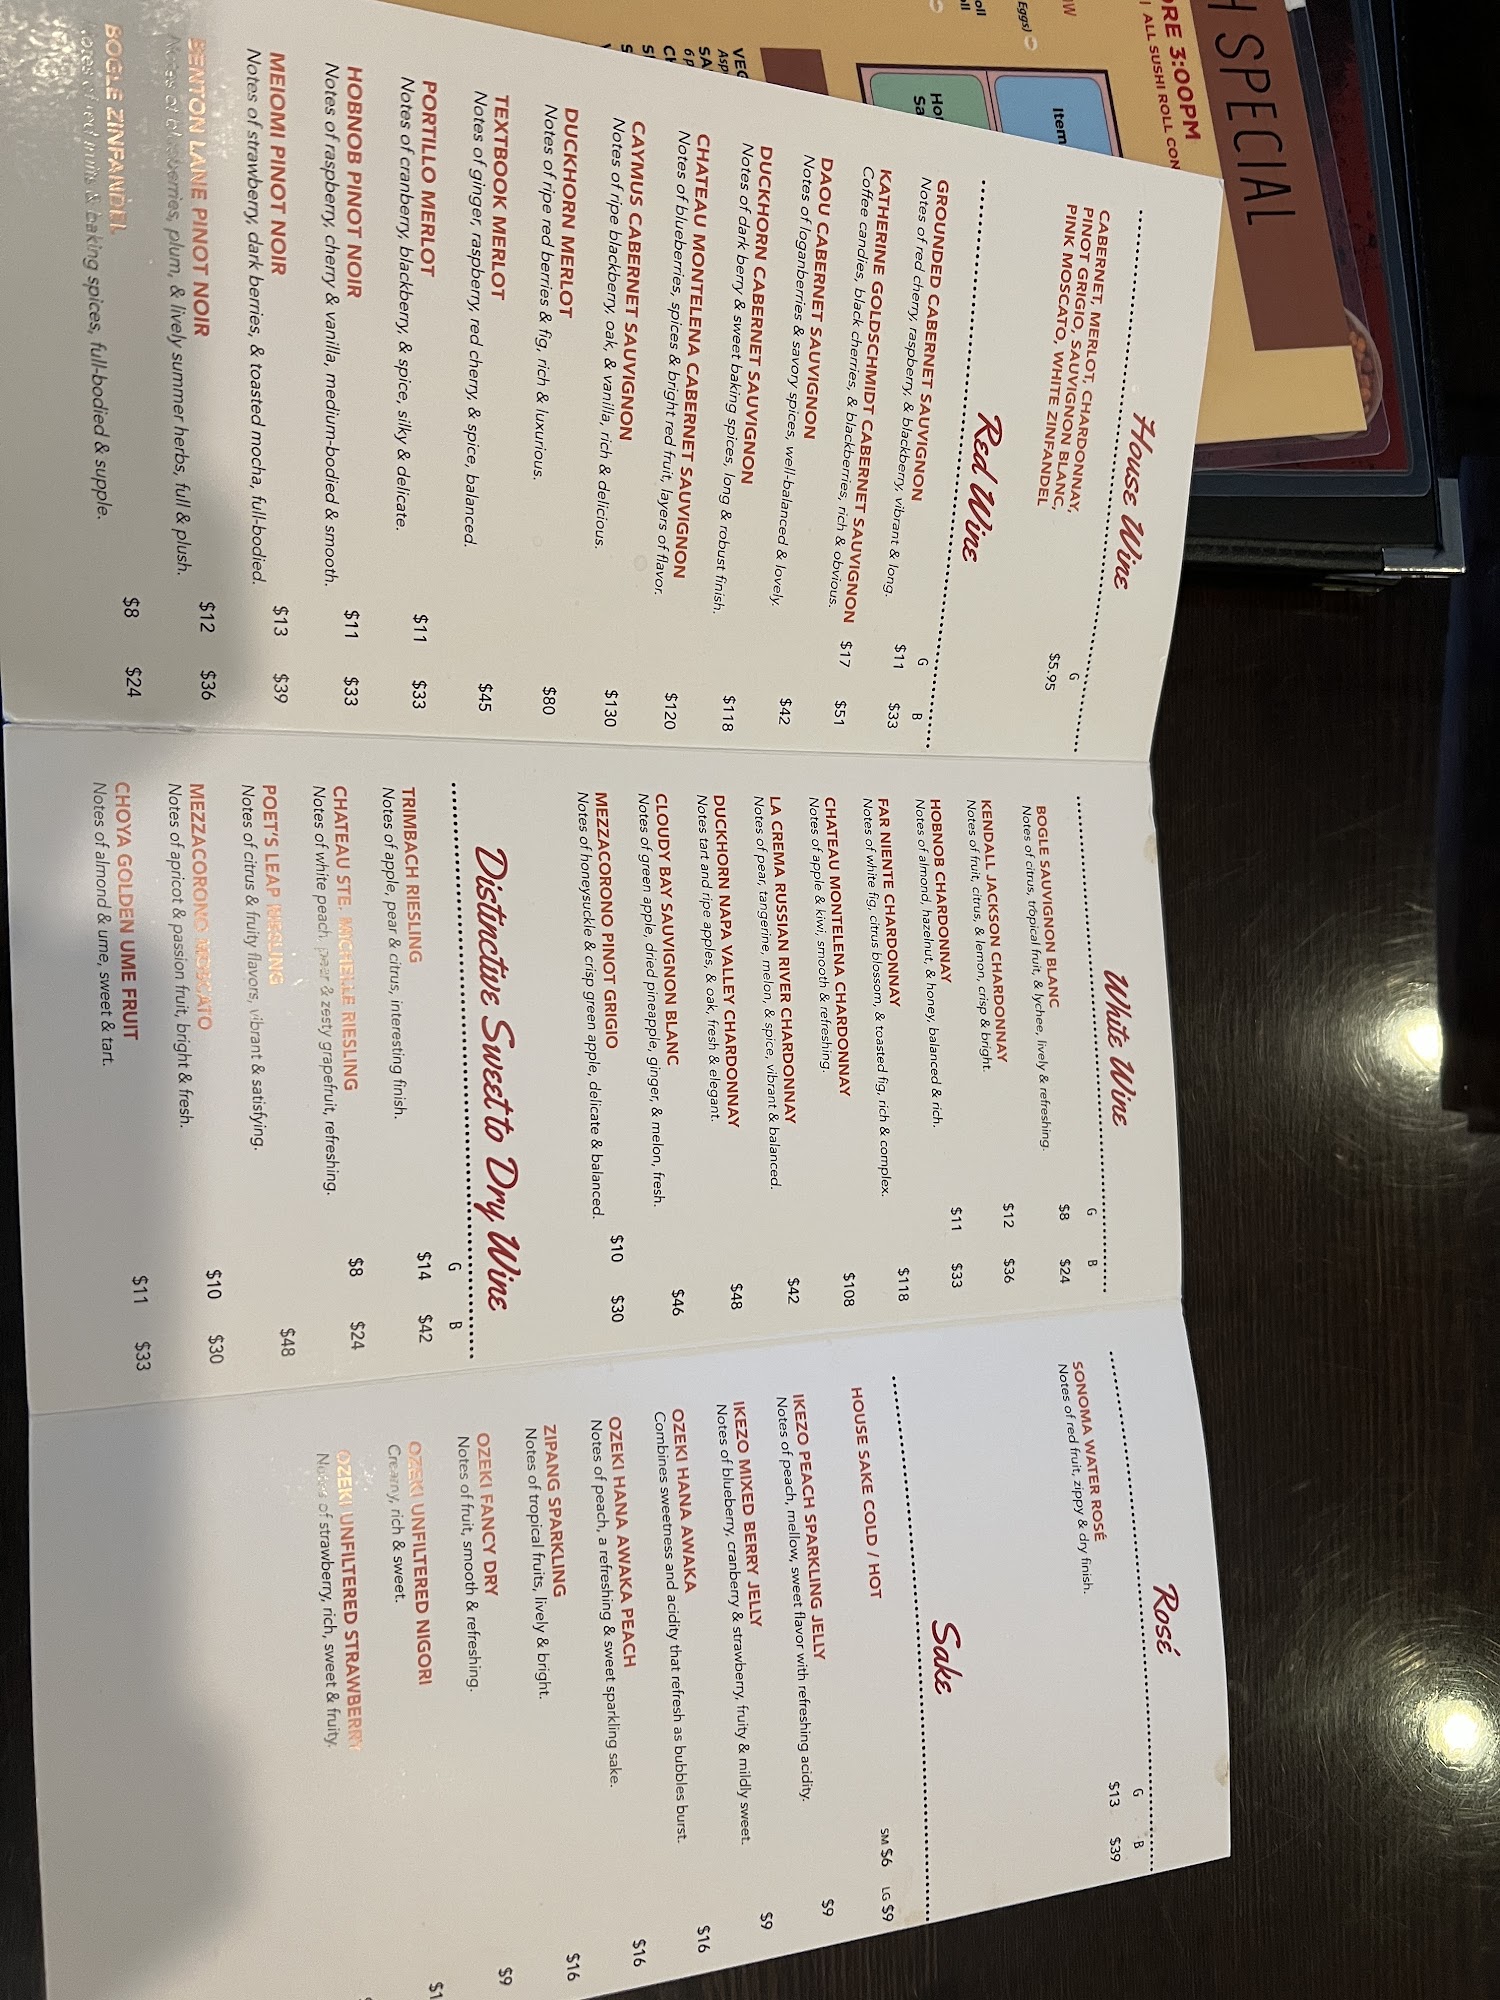 H SPECIAL
ORE 3:00PM
ALL SUSHI ROLL CON
Item
House Wine
G
CABERNET, MERLOT, CHARDONNAY,
PINOT GRIGIO, SAUVIGNON BLANC,
PINK MOSCATO, WHITE ZINFANDEL
$5.95
Red Wine
G B
GROUNDED CABERNET SAUVIGNON $11 $33
Notes of red cherry, raspberry, & blackberry, vibrant & long.
KATHERINE GOLDSCHMIDT CABERNET SAUVIGNON $17 $51
Coffee candies, black cherries, & blackberries, rich & obvious.
DAOU CABERNET SAUVIGNON $42
Notes of loganberries & savory spices, well-balanced & lovely.
DUCKHORN CABERNET SAUVIGNON $118
Notes of dark berry & sweet baking spices, long & robust finish.
CHATEAU MONTELENA CABERNET SAUVIGNON $120
Notes of blueberries, spices & bright red fruit, layers of flavor.
CAYMUS CABERNET SAUVIGNON $130
Notes of ripe blackberry, oak, & vanilla, rich & delicious.
DUCKHORN MERLOT $80
Notes of ripe red berries & fig, rich & luxurious.
TEXTBOOK MERLOT $45
Notes of ginger, raspberry, red cherry, & spice, balanced.
PORTILLO MERLOT $11 $33
Notes of cranberry, blackberry, & spice, silky & delicate.
HOBNOB PINOT NOIR $11 $33
Notes of raspberry, cherry & vanilla, medium-bodied & smooth.
MEIOMI PINOT NOIR $13 $39
Notes of strawberry, dark berries, & toasted mocha, full-bodied.
BENTON LANE PINOT NOIR $12 $36
Notes of blueberries, plum, & lively summer herbs, full & plush.
BOGLE ZINFANDEL $8 $24
Notes of red fruits & baking spices, full-bodied & supple.
White Wine
G B
BOGLE SAUVIGNON BLANC $8 $24
Notes of citrus, tropical fruit, & lychee, lively & refreshing.
KENDALL JACKSON CHARDONNAY $12 $36
Notes of fruit, citrus, & lemon, crisp & bright.
HOBNOB CHARDONNAY $11 $33
Notes of almond, hazelnut, & honey, balanced & rich.
FAR NIENTE CHARDONNAY $118
Notes of white fig, citrus blossom, & toasted fig, rich & complex.
CHATEAU MONTELENA CHARDONNAY $108
Notes of apple & kiwi, smooth & refreshing.
LA CREMA RUSSIAN RIVER CHARDONNAY $42
Notes of pear, tangerine, melon, & spice, vibrant & balanced.
DUCKHORN NAPA VALLEY CHARDONNAY $48
Notes tart and ripe apples, & oak, fresh & elegant.
CLOUDY BAY SAUVIGNON BLANC $46
Notes of green apple, dried pineapple, ginger, & melon, fresh.
MEZZACORONO PINOT GRIGIO $10 $30
Notes of honeysuckle & crisp green apple, delicate & balanced.
Distinctive Sweet to Dry Wine
G B
TRIMBACH RIESLING $14 $42
Notes of apple, pear & citrus, interesting finish.
CHATEAU STE. MICHELLE RIESLING $8 $24
Notes of white peach, pear & zesty grapefruit, refreshing.
POET'S LEAP RIESLING $48
Notes of citrus & fruity flavors, vibrant & satisfying.
MEZZACORONO MOSCATO $10 $30
Notes of apricot & passion fruit, bright & fresh.
CHOYA GOLDEN UME FRUIT $11 $33
Notes of almond & ume, sweet & tart.
Rosé
G B
SONOMA WATER ROSÉ $13 $39
Notes of red fruit, zippy & dry finish.
Sake
HOUSE SAKE COLD / HOT SM $6 LG $9
IKEZO PEACH SPARKLING JELLY $9
Notes of peach, mellow, sweet flavor with refreshing acidity.
IKEZO MIXED BERRY JELLY $9
Notes of blueberry, cranberry & strawberry, fruity & mildly sweet.
OZEKI HANA AWAKA $16
Combines sweetness and acidity that refresh as bubbles burst.
OZEKI HANA AWAKA PEACH $16
Notes of peach, a refreshing & sweet sparkling sake.
ZIPANG SPARKLING $16
Notes of tropical fruits, lively & bright.
OZEKI FANCY DRY $9
Notes of fruit, smooth & refreshing.
OZEKI UNFILTERED NIGORI $1
Creamy, rich & sweet.
OZEKI UNFILTERED STRAWBERRY
Notes of strawberry, rich, sweet & fruity.